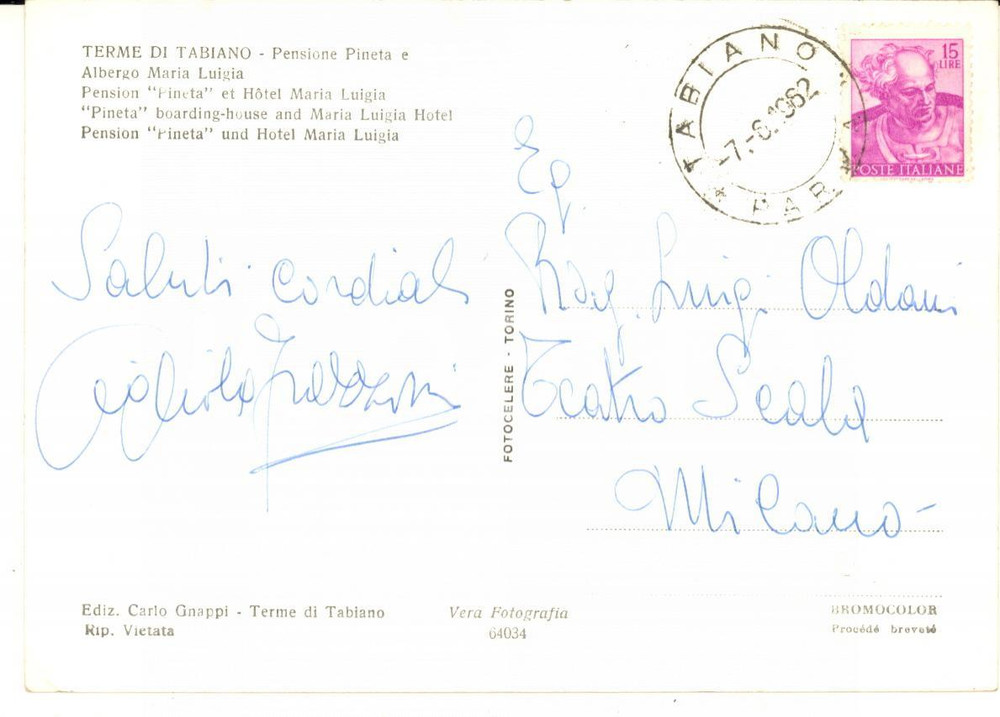 TERME DI TABIANO - Pensione Pineta e
Albergo Maria Luigia
Pension "Pineta" et Hôtel Maria Luigia
"Pineta" boarding-house and Maria Luigia Hotel
Pension "Pineta" und Hotel Maria Luigia
TABIANO
-7.-6.1962
* PARMA
15
LIRE
POSTE ITALIANE
Saluti cordiali
Gigliola Frazzoni
Eg.
Rag. Luigi Oldani
Teatro Scala
Milano
FOTOCELERE - TORINO
Ediz. Carlo Gnappi - Terme di Tabiano
Rip. Vietata
Vera Fotografia
64034
BROMOCOLOR
Procédé breveté